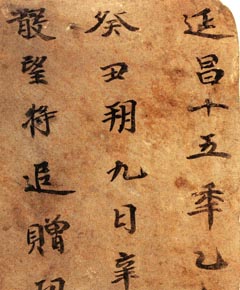 延昌十五季乙
癸丑朔九日辛
散望将追贈